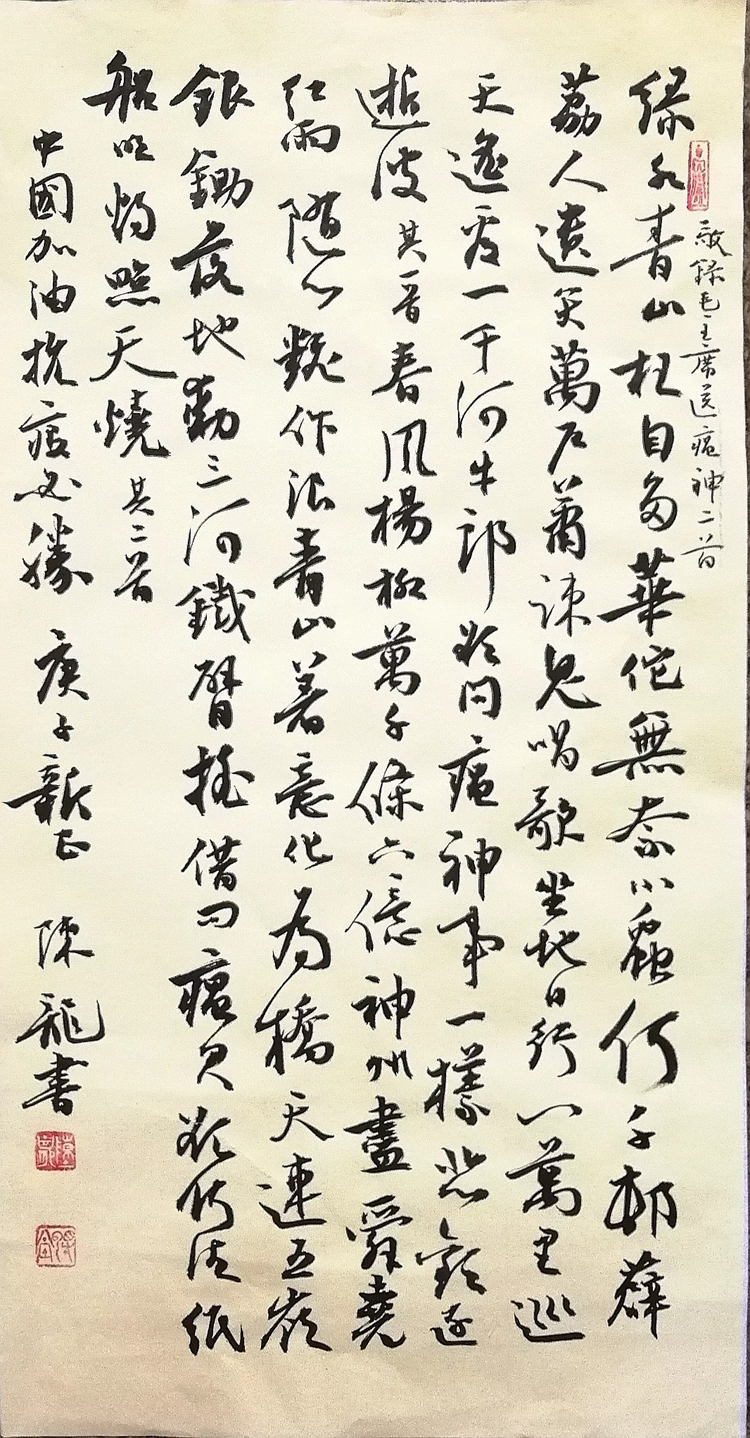 敬録毛主席送瘟神二首
绿水青山枉自多華佗無奈小蟲何千邨薜
荔人遗矢萬户蕭疎鬼唱歌坐地日行八萬里巡
天遥看一千河牛郎欲问瘟神事一樣悲歡逐
逝波 其一首 春風楊柳萬千條六億神州盡舜堯
红雨随心翻作浪青山着意化为橋天連五岭
銀鋤落地動三河鐵臂摇借问瘟君欲何往纸
船明燭照天燒 其二首
中國加油抗疫必勝 庚子新正 陳龍書